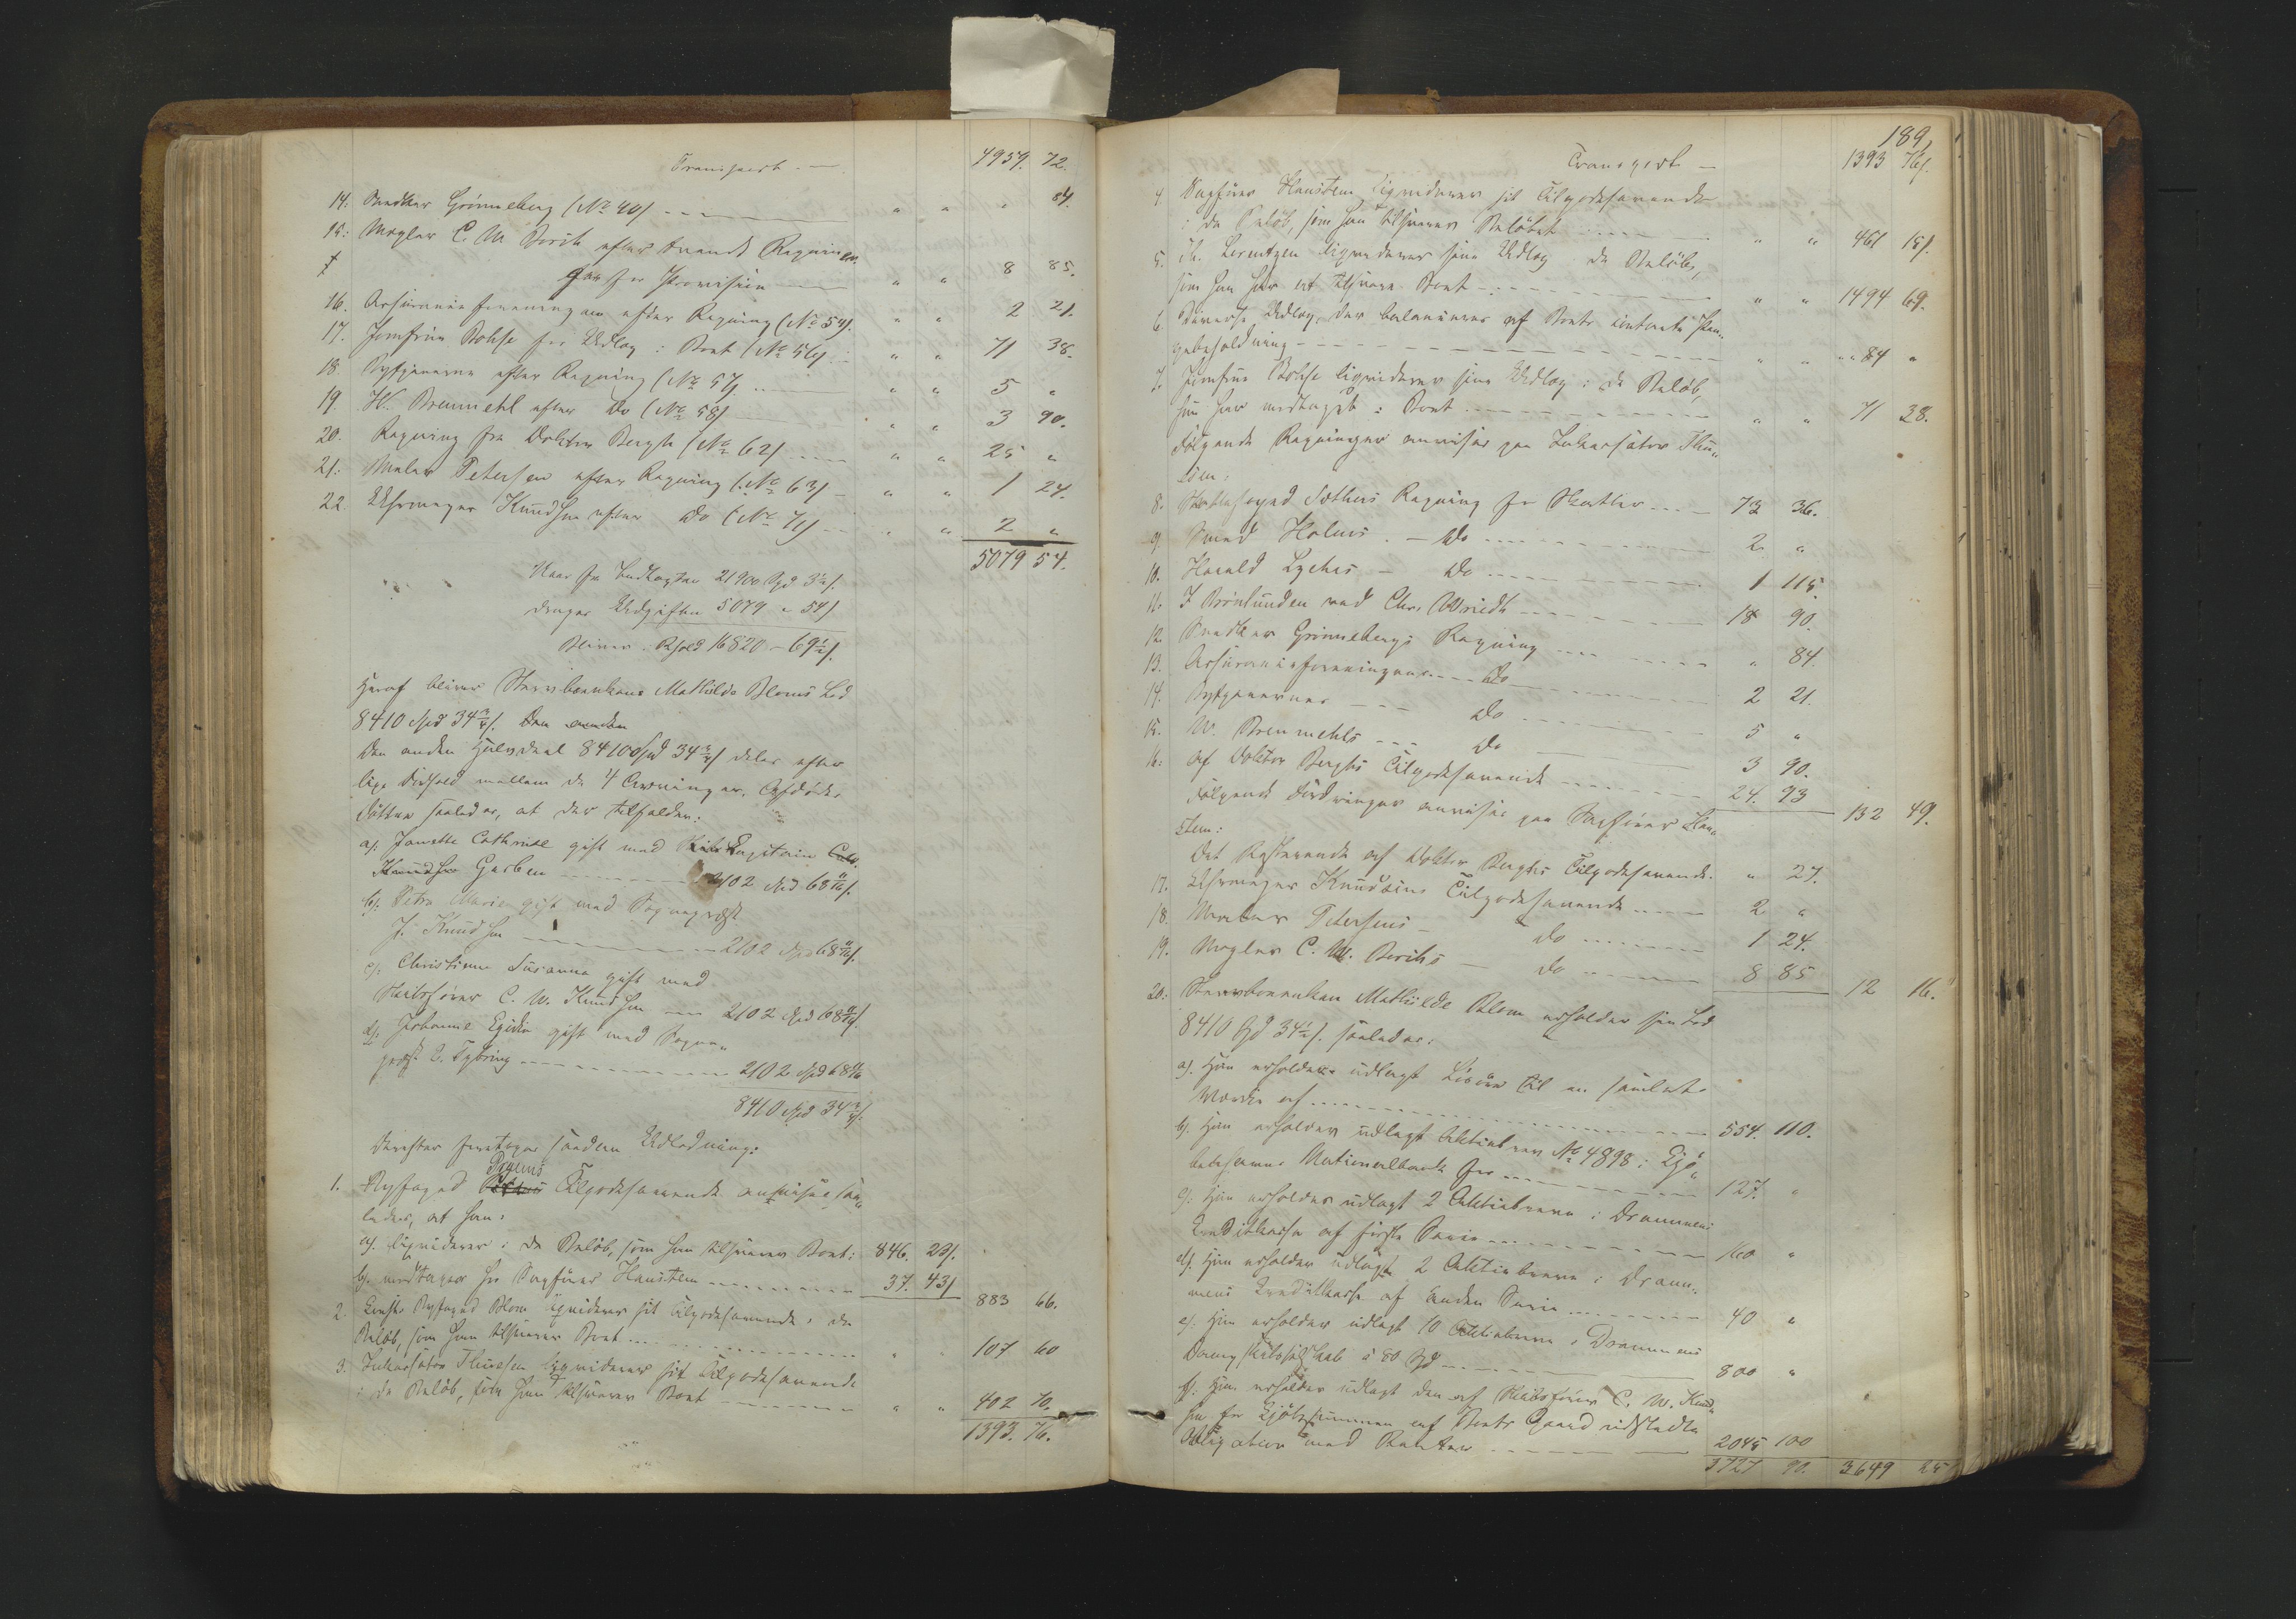 Transport - — 4957. 72.
14: Snedker Grönneberg (No 40) - - - — „ „ „ 84.
15: Mægler C. M. Borch efter tvende Regninger
for Provision — „ „ 8 85.
16. Assuranceforeningen efter Regning (No 54). „ „ 2 21.
17. Jomfrue Bohse for Udlæg i Boet (No 56) - „ „ 71 38.
18. Bytjenerne efter Regning (No 57) . — „ „ 5 „
19. W. Brenmehl efter Do (No 58) — „ „ 3 90.
20. Regning fra Doktor Bergh (No 62) ..... „ „ 25 „
21: Maler Petersen efter Regning (No 63) - „ „ 1 24.
22. Uhrmager Knudsen efter Do (No 71) - - . „ 2 „
5079 54.
Naar fra Indtægten 21900 Spd 3½ /.
drages Udgiften 5079 „ 54 /
Bliver i Behold 16820 – 69½ /.
Heraf bliver Stervboenken Mathilde Bloms Lod
8410 Spd 34¾ /. Den anden
Den anden Halvdeel 8410 Spd 34¾ / deles efter
lige Forhold mellem de 4 Arvinger, Afdödes
Döttre saaledes, at der tilfalder:
a). Janette Cathrine gift med Kapitain
Knudsen Garben ———— 2102 Spd 68 11/16 /.
b). Petra Marie gift med Sogneprest
J. Knudsen ———— 2102 Spd 68 11/16 /.
c). Christiane Susanna gift med
Skibsförer C. W. Knudsen — 2102 Spd 68 11/16 /.
d). Johanne Egidia gift med Sogne„
prest L. Tybring ———— 2102 Spd 68 11/16
8410 Spd 34¾ /.
Derefter foretages saadan Udlodning:
1. Byfoged Tilgodehavende anvises saa„
ledes, at han:
a). liqviderer i de Belöb, som han tilsvarer Boet: 846. 23 /.
b). modtager fra Sagförer Haustein ........ 37. 43 /
883 66.
2. Byfoged Blom liqviderer sit Tilgodehavende i de
Belöb, som han tilsvarer Boet .... „ „ 107 60
3. Inkassator Thuesen liqviderer sit Tilgodehavende
i de Belöb, som han tilsvarer Boet - - - — „ „ 402 70.
1393. 76.
189.
Transport – 1393 76 /.
4 Sagförer Haustein liqviderer sit Tilgodehavende
i de Belöb, som han tilsvarer Beløbet - - - — „ „ 461 15 /.
5. Th. Lorentzen liqviderer sine Udlæg i de Belöb,
som han har at tilsvare Boet - - - — „ „ 1494 69.
6 Diverse Udlæg, der balanceres af Boets contante Pen„
gebeholdning - - - — „ „ „ 84 „
7. Jomfrue Bohse liqviderer sine Udlæg i de Belöb,
hun har modtaget i Boet — „ „ 71 38.
Fölgende Regninger anvises paa Inkassator Thue„
sen:
8. Skattefoged Sothus Regning for Skatter - - - — 73 36.
9 Smed Holms . – Do ...... 2. „
10. Harald Lyches – Do ..... 1 115.
11. I Brönlunden ved Chr. Wriedt - - - — 18 90.
12. Snedker Grönnebergs Regning .... — „ 84.
13. Assuranceforeningens - - - Do — 2 21.
14. Bytjenernes - - - Do — 5 „
15. W. Brenmehls - - - Do — 3 90.
16: Af Doktor Berghs Tilgodehavende - - - — 24. 93
132 49.
Fölgende Fordringer anvises paa Sagförer Hau„
stein:
Det Resterende af Doktor Berghs Tilgodehavende. „ 27.
17. Uhrmager Knudsens Tilgodehavende .... — 2 „
18. Maler Petersens – Do ....... 1 24.
19. Mægler C. M. Borchs — Do ..... 8 85
12 16.
20: Stervboenken Mathilde Blom erholder sin Lod
8410 Spd 34½ /. saaledes:
a). Hun erholder udlagt Lösöre til en samlet
Værdie af ........ 554. 110.
b). Hun erholder udlagt Aktiebrev No 4898 i Kjö„
benhavns Nationalbank for - - - — 127. „
c). Hun erholder udlagt 2 Aktiebreve i Drammens
Creditkasse af förste Serie ...... — 160 „
d). Hun erholder udlagt 2 Aktiebreve i Dram„
mens Creditkasse af anden Serie ....... — 40 „
e). Hun erholder udlagt 10 Aktiebreve i Drammens
Dampskibsselskab á 80 Spd — 800 „
f). Hun erholder udlagt den af Skibsförer C. W. Knud„
sen for Kjöbesummen af Boets Gaard udstedte
Obligation med Renter - - - — 2045 100
3727 90. 3649 25